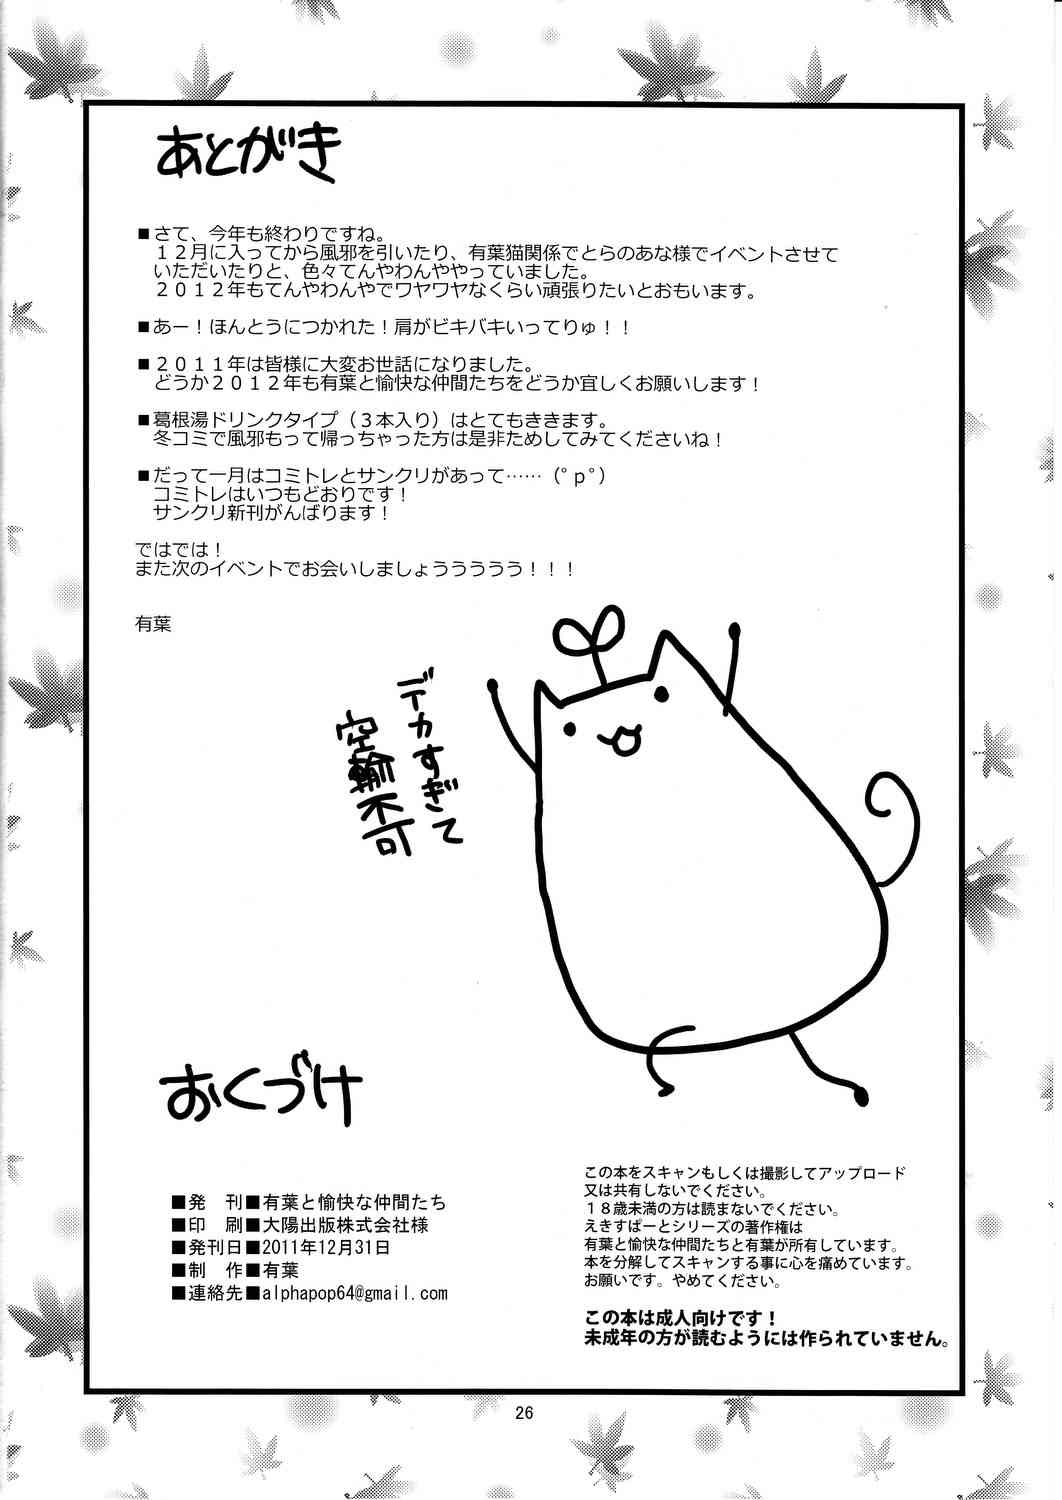 あとがき
■さて、今年も終わりですね。
１２月に入ってから風邪を引いたり、有葉猫関係でとらのあな様でイベントさせて
いただいたりと、色々てんやわんややっていました。
２０１２年もてんやわんやでワヤワヤなくらい頑張りたいとおもいます。
■あー！ほんとうにつかれた！肩がビキバキいってりゅ！！
■２０１１年は皆様に大変お世話になりました。
どうか２０１２年も有葉と愉快な仲間たちをどうか宜しくお願いします！
■葛根湯ドリンクタイプ（３本入り）はとてもききます。
冬コミで風邪もって帰っちゃった方は是非ためしてみてくださいね！
■だって一月はコミトレとサンクリがあって……（ﾟｐﾟ）
コミトレはいつもどおりです！
サンクリ新刊がんばります！
ではでは！
また次のイベントでお会いしましょううううう！！！
有葉
デカすぎて
空輸不可
おくづけ
■発　刊■有葉と愉快な仲間たち
■印　刷■大陽出版株式会社様
■発刊日■2011年12月31日
■制　作■有葉
■連絡先■alphapop64@gmail.com
この本をスキャンもしくは撮影してアップロード
又は共有しないでください。
１８歳未満の方は読まないでください。
えきすぱーとシリーズの著作権は
有葉と愉快な仲間たちと有葉が所有しています。
本を分解してスキャンする事に心を痛めています。
お願いです。やめてください。
この本は成人向けです！
未成年の方が読むようには作られていません。
26